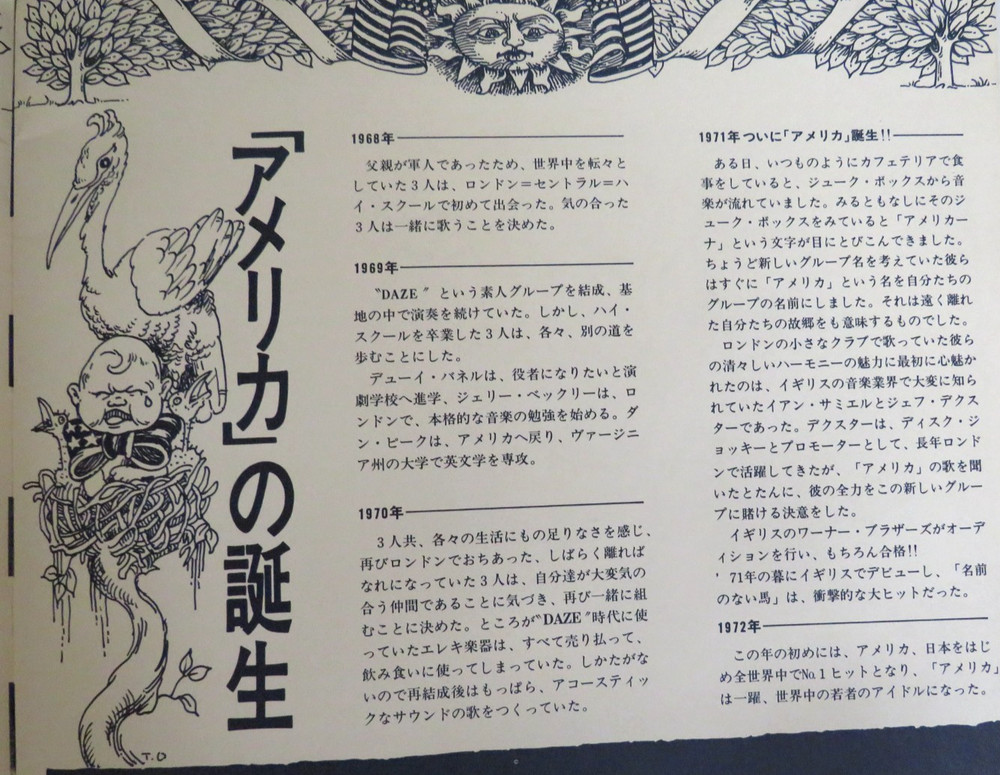 「アメリカ」の誕生
1968年
父親が軍人であったため、世界中を転々と
していた3人は、ロンドン＝セントラル＝ハ
イ・スクールで初めて出会った。気の合った
3人は一緒に歌うことを決めた。
1969年
〝DAZE〞という素人グループを結成、基
地の中で演奏を続けていた。しかし、ハイ・
スクールを卒業した3人は、各々、別の道を
歩むことにした。
デューイ・バネルは、役者になりたいと演
劇学校へ進学、ジェリー・ベックリーは、ロ
ンドンで、本格的な音楽の勉強を始める。ダ
ン・ピークは、アメリカへ戻り、ヴァージニ
ア州の大学で英文学を専攻。
1970年
3人共、各々の生活にもの足りなさを感じ、
再びロンドンでおちあった、しばらく離れば
なれになっていた3人は、自分達が大変気の
合う仲間であることに気づき、再び一緒に組
むことに決めた。ところが〝DAZE〞時代に使
っていたエレキ楽器は、すべて売り払って、
飲み食いに使ってしまっていた。しかたがな
いので再結成後はもっぱら、アコースティッ
クなサウンドの歌をつくっていた。
1971年 ついに「アメリカ」誕生!!
ある日、いつものようにカフェテリアで食
事をしていると、ジューク・ボックスから音
楽が流れていました。みるともなしにそのジ
ューク・ボックスをみていると「アメリカー
ナ」という文字が目にとびこんできました。
ちょうど新しいグループ名を考えていた彼ら
はすぐに「アメリカ」という名を自分たちの
グループの名前にしました。それは遠く離れ
た自分たちの故郷をも意味するものでした。
ロンドンの小さなクラブで歌っていた彼ら
の清々しいハーモニーの魅力に最初に心魅か
れたのは、イギリスの音楽業界で大変に知ら
れていたイアン・サミエルとジェフ・デクス
ターであった。デクスターは、ディスク・ジ
ョッキーとプロモーターとして、長年ロンド
ンで活躍してきたが、「アメリカ」の歌を聞
いたとたんに、彼の全力をこの新しいグルー
プに賭ける決意をした。
イギリスのワーナー・ブラザーズがオーデ
ィションを行い、もちろん合格!!
'71年の暮にイギリスでデビューし、「名前
のない馬」は、衝撃的な大ヒットだった。
1972年
この年の初めには、アメリカ、日本をはじ
め全世界中でNo.1ヒットとなり、「アメリカ」
は一躍、世界中の若者のアイドルになった。
T.O